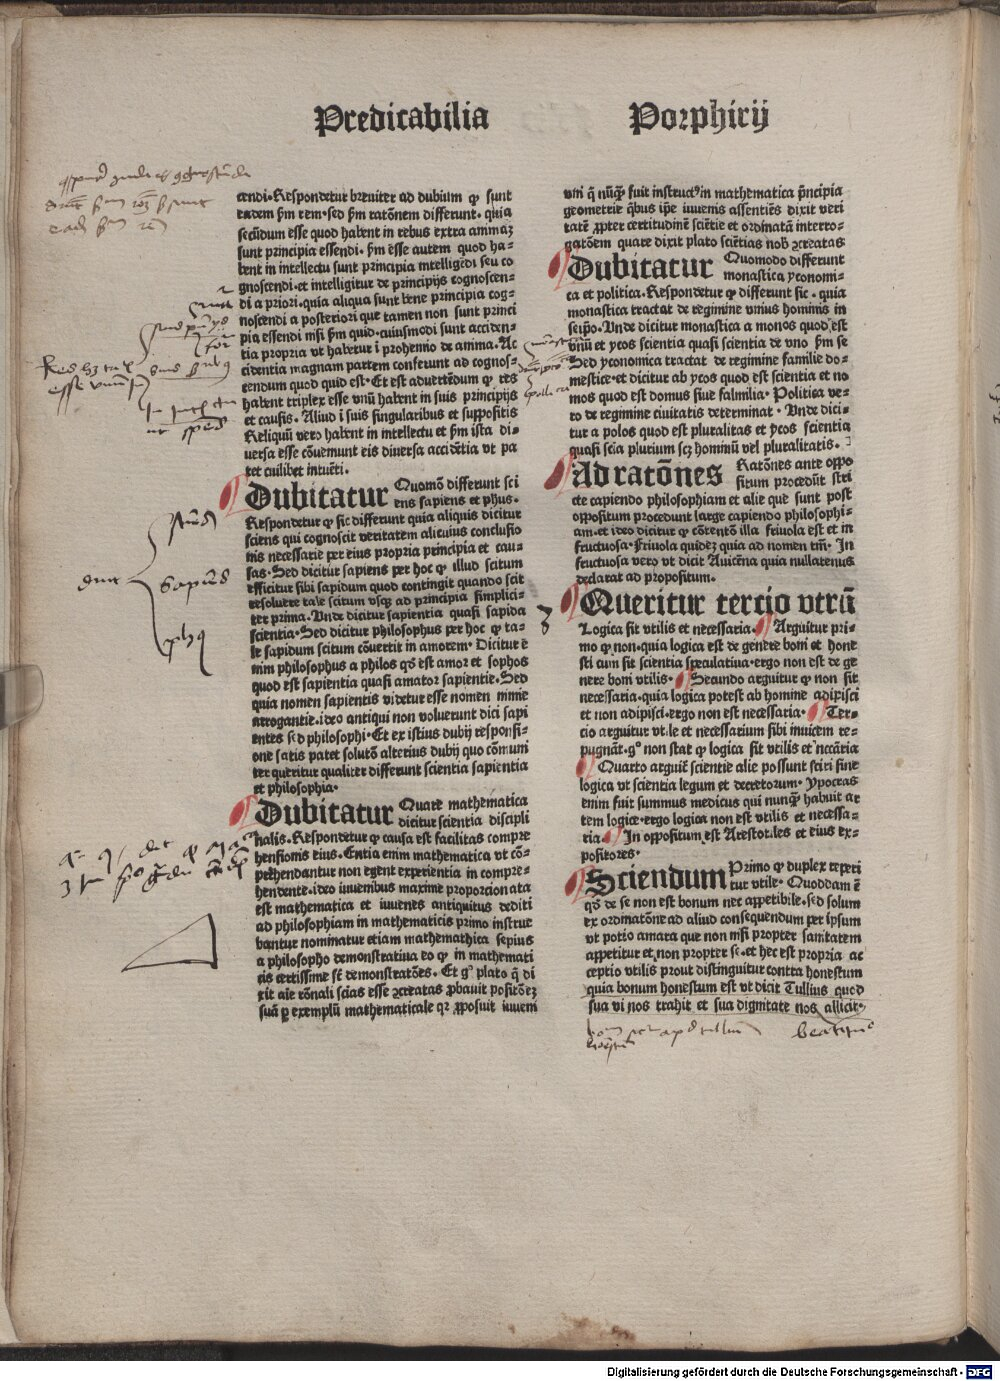 Predicabilia Porphirij
cendi. Respondetur breuiter ad dubium ꝙ sunt
eadem ẜm rem. sed ẜm ratōnem differunt. quia
secūdum esse quod habent in rebus extra animaʒ
sunt principia essendi. ẜm esse autem quod ha-
bent in intellectu sunt principia intelligēdi seu co
gnoscendi. et intelligitur de principijs cognoscen-
di a priori. quia aliqua sunt bene principia cog-
noscendi a posteriori que tamen non sunt princi
pia essendi nisi ẜm quid. cuiusmodi sunt acciden-
tia propria vt habetur i prohemio de anima. Ac
cidentia magnam partem conferunt ad cognos-
cendum quod quid est. Et est aduertēdum ꝙ res
habent triplex esse vnū habent in suis principijs
et causis. Aliud ī suis singularibus et suppositis
Reliquū vero habent in intellectu et ẜm ista di-
uersa esse cōuemunt eis diuersa accidētia vt pa
tet cuilibet intuēti.
Dubitatur Quomō differunt sci
ens sapiens et phus.
Respondetur ꝙ sic differunt quia aliquis dicitur
sciens qui cognoscit veritatem alicuius conclusio
nis necessarie per eius propria principia et cau-
sas. Sed dicitur sapiens per hoc ꝙ illud scitum
efficitur sibi sapidum quod contingit quando scit
resoluere tale scitum vsqꝫ ad principia simplici-
ter prima. Vnde dicitur sapientia quasi sapida
scientia. Sed dicitur philosophus per hoc ꝙ ta-
le sapidum scitum cōuertit in amorem. Dicitur ē
nim philosophus a philos qđ est amor et sophos
quod est sapientia quasi amator sapientie. Sed
quia nomen sapientis videtur esse nomen nimie
arrogantie. ideo antiqui non voluerunt dici sapi
entes sed philosophi. Et ex istius dubij responsi-
one satis patet solutō alterius dubij quo cōmuni
ter queritur qualiter differunt scientia sapientia
et philosophia.
Dubitatur Quare mathematica
dicitur scientia discipli
nalis. Respondetur ꝙ causa est facilitas compre
hensionis eius. Entia enim mathematica vt cō-
prehendantur non egent experientia in compre-
hendente. ideo iuuenibus maxime proporcionata
est mathematica et iuuenes antiquitus dediti
ad philosophiam in mathematicis primo instrue
bantur nominatur etiam mathemathica sepius
a philosopho demonstratiua eo ꝙ in mathemati
cis certissime sūt demonstratōes. Et gͦ plato q̄ di
xit aīe rōnali scīas esse ꝯcreatas ꝓbauit positōeʒ
suā ꝑ exemplū mathematicale qꝛ ꝓposuit iuueni
vni q̄ nūqꝫ fuit instructꝰ in mathematica p̄ncipia
geometrie q̄bus ipe iuuenis assentiēs dixit veri
tatē ꝓpter certitudinē sciētie et ordinatā interro-
gatōem quare dixit plato sciētias nob̄ ꝯcreatas
Dubitatur Quomodo differunt
monastica yconomi-
ca et politica. Respondetur ꝙ differunt sic. quia
monastica tractat de regimine vnius hominis in
seip̄o. Vnde dicitur monastica a monos quod est
vnū et ycos scientia quasi scientia de vno ẜm se
Sed yconomica tractat de regimine familie do-
mestice. et dicitur ab ycos quod est scientia et no
mos quod est domus siue falmilia. Politica ve-
ro de regimine ciuitatis determinat. Vnde dici-
tur a polos quod est pluralitas et ycos scientia
quasi scīa plurium scʒ hominū vel pluralitatis.
Ad ratōnes Ratōnes ante oppo
situm procedūt stri
cte capiendo philosophiam et alie que sunt post
oppositum procedunt large capiendo philosophi-
am. et ideo dicitur ꝙ cōtentō illa friuola est et in
fructuosa. Friuola quideʒ quia ad nomen tm̄. In
fructuosa vero vt dicit Auicēna quia nullatenus
declarat ad propositum.
Queritur tercio vtrū
Logica sit vtilis et necessaria. Arguitur pri-
mo ꝙ non. quia logica est de genere boni et hone
sti cum sit scientia speculatiua. ergo non est de ge
nere boni vtilis. Secundo arguitur ꝙ non sit
necessaria. quia logica potest ab homine adipisci
et non adipisci. ergo non est necessaria. Ter-
cio arguitur vtile et necessarium sibi inuicem re-
pugnāt. gͦ non stat ꝙ logica sit vtilis et necc̄aria
Quarto arguit̄ scientie alie possunt sciri sine
logica vt scientia legum et decretorum. Ypocras
enim fuit summus medicus qui nunqꝫ habuit ar
tem logice. ergo logica non est vtilis et necessa-
ria. In oppositum est Arestotiles et eius ex-
positores.
Sciendum Primo ꝙ duplex reperi
tur vtile. Quoddam ē
qđ de se non est bonum nec appetibile. sed solum
ex ordinatōne ad aliud consequendum per ipsum
vt potio amara que non nisi propter sanitatem
appetitur et non propter se. et hec est propria ac
ceptio vtilis prout distinguitur contra honestum
quia bonum honestum est vt dicit Tullius quod
sua vi nos trahit et sua dignitate nos allicit.
Digitalisierung gefördert durch die Deutsche Forschungsgemeinschaft - DFG